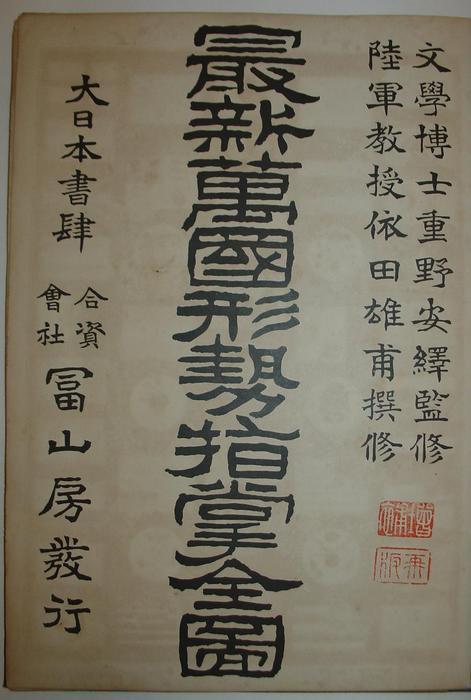 文學博士重野安繹監修
陸軍教授依田雄甫撰修
最新萬國形勢指掌全圖
大日本書肆
合資
會社
冨山房發行